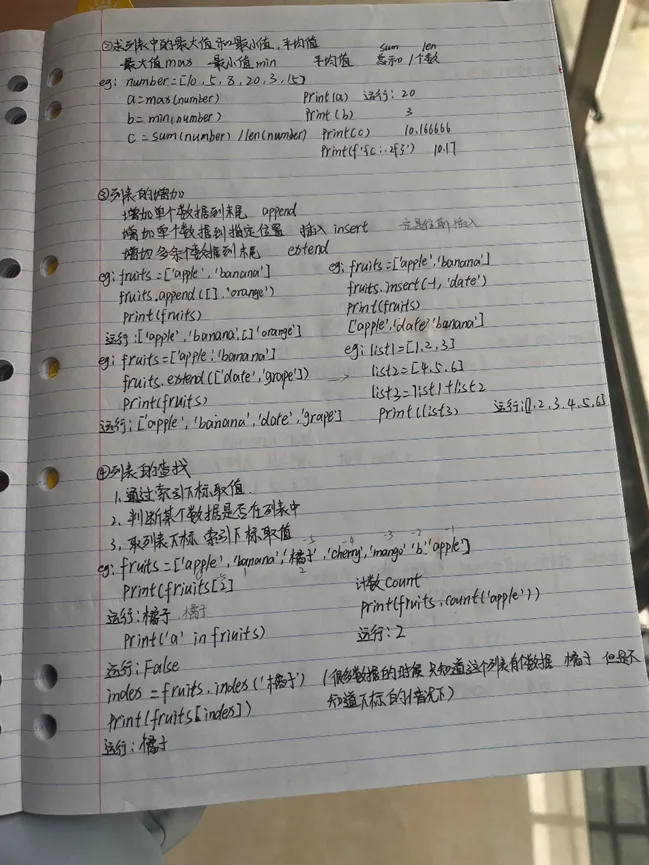 ②求列表中的最大值和最小值,平均值
最大值max 最小值min 平均值 sum总和/len个数
eg: number=[10,5,8,20,3,15]
a=max(number) print(a) 运行: 20
b=min(number) print(b) 3
c=sum(number)/len(number) print(c) 10.166666
print(f'{c:.2f}') 10.17
③列表的增加
增加单个数据到末尾 append
增加单个数据到指定位置 插入insert 定是往前插入
增加多条个数据到末尾 extend
eg: fruits=['apple','banana'] eg: fruits=['apple','banana']
fruits.append([].'orange') fruits.insert(-1,'date')
print(fruits) print(fruits)
运行:['apple','banana',[]'orange'] ['apple','date''banana']
eg: fruits=['apple','banana'] eg: list1=[1,2,3]
fruits.extend(['date','grape']) → list2=[4,5,6]
print(fruits) list3=list1+list2
运行:['apple','banana','date','grape'] print(list3) 运行:[1,2,3,4,5,6]
④列表的查找
1,通过索引下标取值
2,判断某个数据是否在列表中
3,取列表下标 索引下标取值
-5 -4 -3 -2 -1
eg: fruits=['apple','banana','橘子','cherry','mango''b''apple']
1 2
print(friuits[2] 计数count
运行:橘子 橘子 print(fruits.count('apple'))
print('a' in fruits) 运行:2
运行:False
index=fruits.index('橘子') (很多数据的时候 只知道这个列表有个数据 橘子 但是不
print(fruits[index]) 知道下标的情况下)
运行:橘子